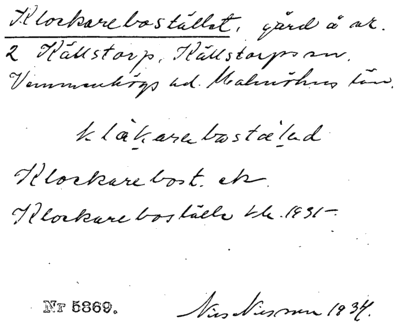 Klockarebostället, gård å nr.
2 Källstorp, Källstorps sn.
Vemmenhögs hd. Malmöhus län.
klåkarebostäled
Klockarebost. ek.
Klockareboställe blr. 1931–
Nr 5369.
Nils Nilsson 1934.